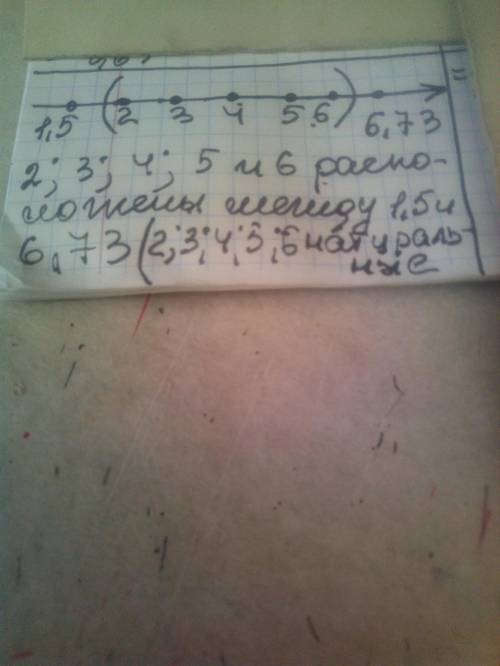 1,5 (2 3 4 5 6) 6,73
2; 3; 4; 5 и 6 распо-
ложены между 1,5 и
6,73 (2; 3; 4; 5; 6 натураль-
ные